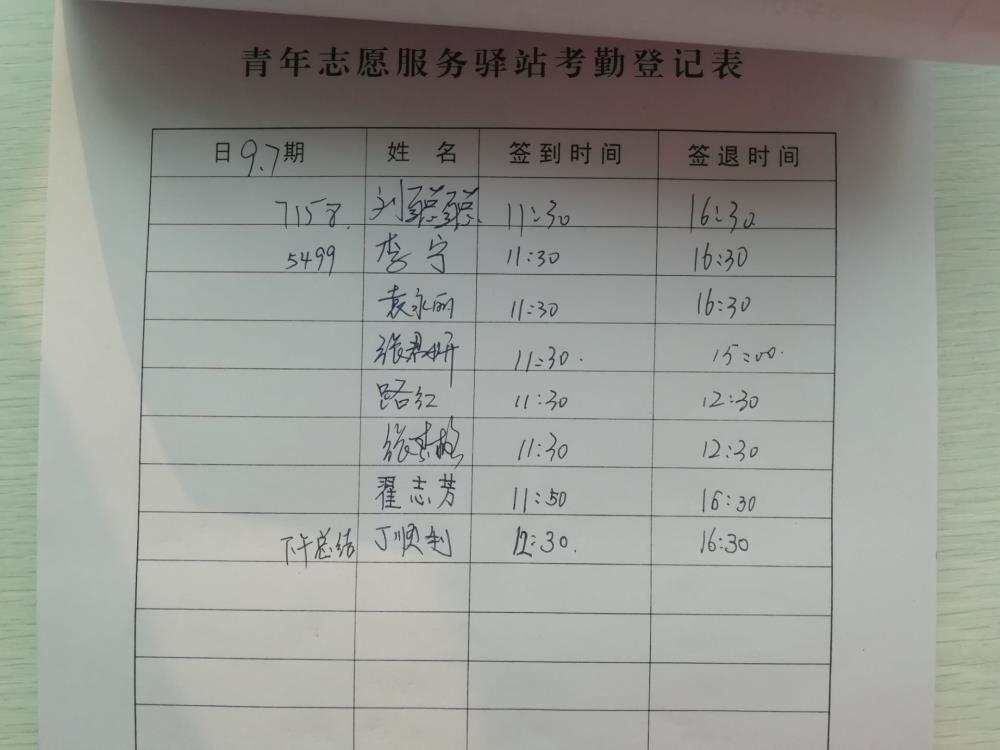 青年志愿服务驿站考勤登记表
日9.7期 姓名 签到时间 签退时间
7158. 刘聪聪 11:30 16:30
5499 李宁 11:30 16:30
袁永丽 11:30 16:30
张君妍 11:30. 15:00.
路红 11:30 12:30
张 11:30 12:30
翟志芳 11:50 16:30
下午总结 丁顺利 12:30. 16:30